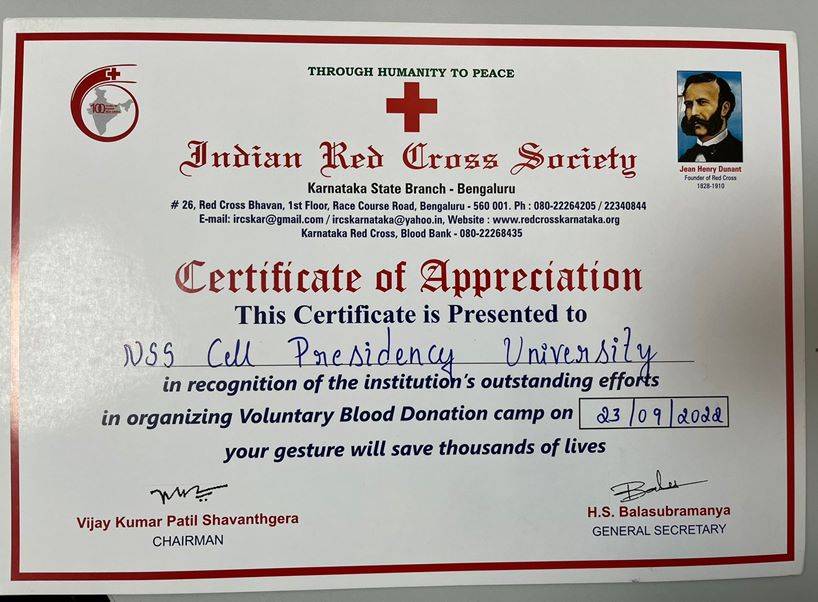 THROUGH HUMANITY TO PEACE
100
Indian Red Cross Society
Jean Henry Dunant
Founder of Red Cross
1828-1910
Karnataka State Branch - Bengaluru
# 26, Red Cross Bhavan, 1st Floor, Race Course Road, Bengaluru - 560 001. Ph : 080-22264205 / 22340844
E-mail: ircskar@gmail.com / ircskarnataka@yahoo.in, Website : www.redcrosskarnataka.org
Karnataka Red Cross, Blood Bank - 080-22268435
Certificate of Appreciation
This Certificate is Presented to
NSS Cell Presidency University
in recognition of the institution's outstanding efforts
in organizing Voluntary Blood Donation camp on 23/09/2022
your gesture will save thousands of lives
Vijay Kumar Patil Shavanthgera
CHAIRMAN
H.S. Balasubramanya
GENERAL SECRETARY